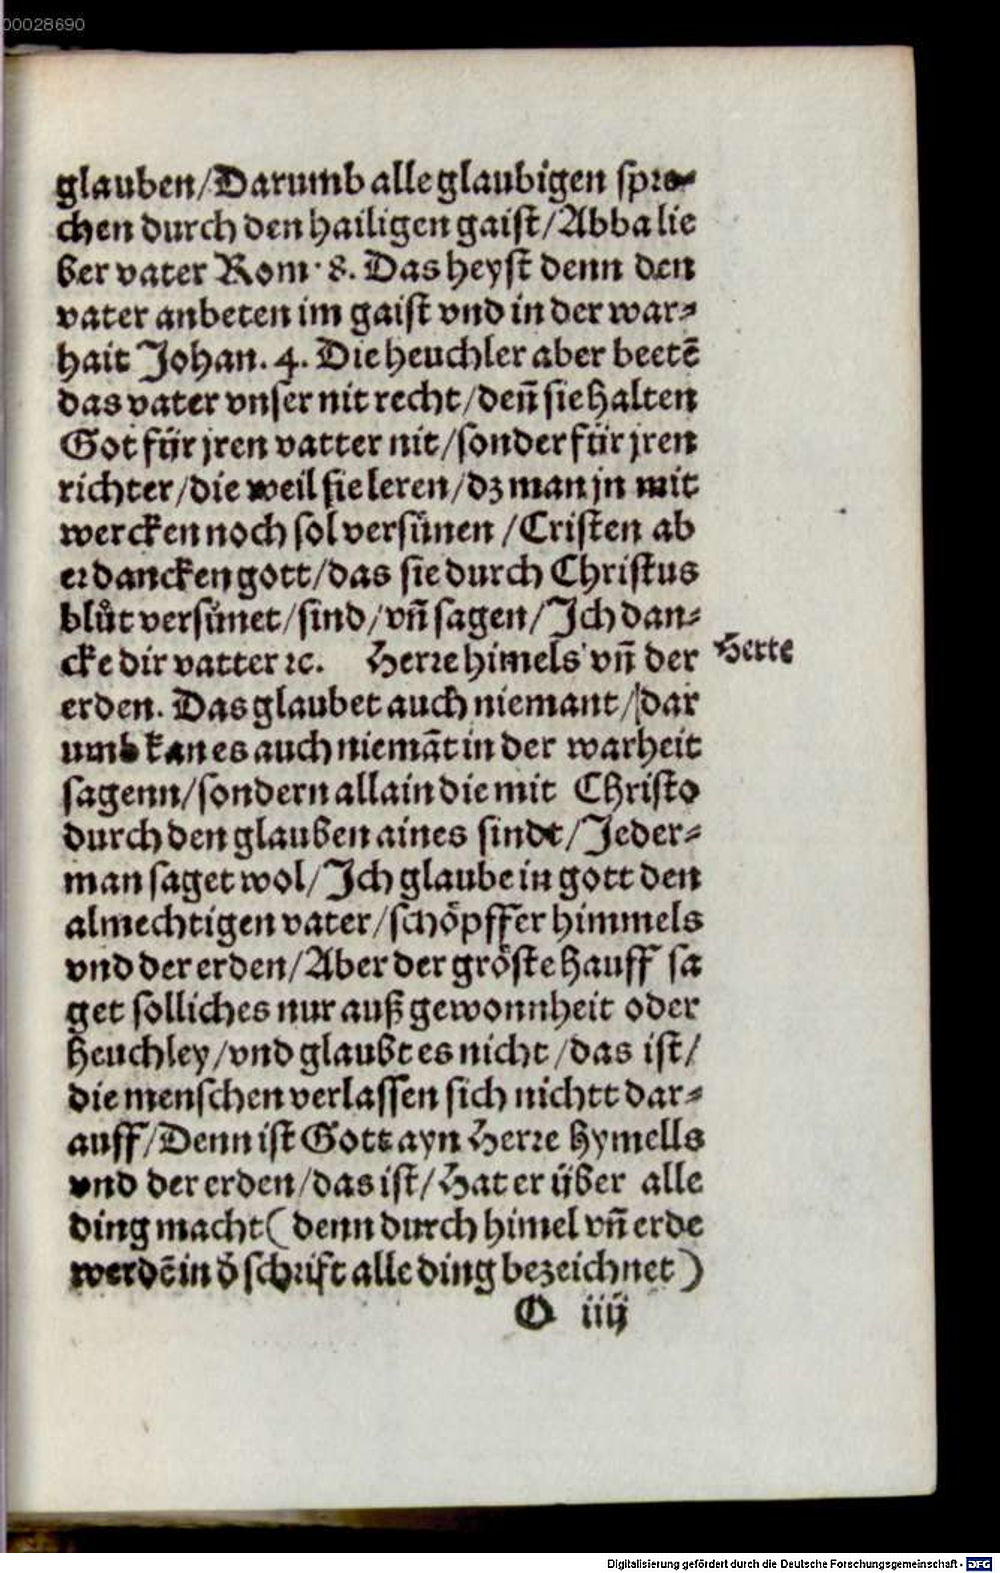 00028690
glauben/Darumb alle glaubigen spre-
chen durch den hailigen gaist/Abba lie
ber vater Rom. 8. Das heyst denn den
vater anbeten im gaist vnd in der war-
hait Johan. 4. Die heuchler aber beetē
das vater vnser nit recht/den̄ sie halten
Got für jren vatter nit/sonder für jren
richter/die weil sie leren/dz man jn mit
wercken noch sol versünen/Cristen ab
er dancken gott/das sie durch Christus
blůt versünet/sind/vn̄ sagen/Ich dan-
cke dir vatter ꝛc. Herre himels vn̄ der
Herre
erden. Das glaubet auch niemant/dar
umb kan es auch niemāt in der warheit
sagenn/sondern allain die mit Christo
durch den glauben aines sindt/Jeder-
man saget wol/Ich glaube in gott den
almechtigen vater/schöpffer himmels
vnd der erden/Aber der gröste hauff sa
get solliches nur auß gewonnheit oder
heuchley/vnd glaubt es nicht/das ist/
die menschen verlassen sich nichtt dar-
auff/Denn ist Gott ayn Herre hymells
vnd der erden/das ist/Hat er über alle
ding macht(denn durch himel vn̄ erde
werdē in d̄ schrift alle ding bezeichnet)
O iiij
Digitalisierung gefördert durch die Deutsche Forschungsgemeinschaft - DFG